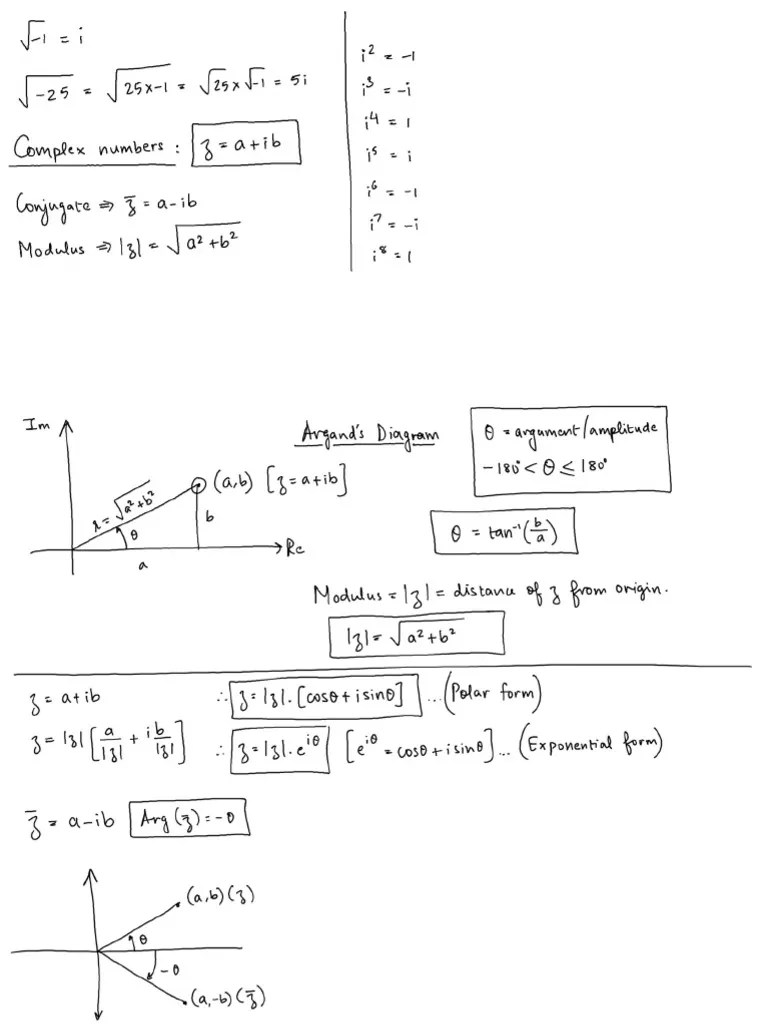 √-1 = i
√-25 = √25x-1 = √25 x √-1 = 5i
Complex numbers : z = a+ib
Conjugate ⇒ z̄ = a-ib
Modulus ⇒ |z| = √a²+b²
i² = -1
i³ = -i
i⁴ = 1
i⁵ = i
i⁶ = -1
i⁷ = -i
i⁸ = 1
Im
Argand's Diagram
θ = argument/amplitude
-180° < θ ≤ 180°
(a,b) [z=a+ib]
r = √a²+b²
θ
b
a
Re
θ = tan⁻¹(b/a)
Modulus = |z| = distance of z from origin.
|z| = √a²+b²
z = a+ib ∴ z = |z|.[cosθ+isinθ] ...(Polar form)
z = |z| [a/|z| + ib/|z|] ∴ z = |z|.e^iθ [e^iθ = cosθ+isinθ]... (Exponential form)
z̄ = a-ib Arg(z̄) = -θ
(a,b)(z)
θ
-θ
(a,-b)(z̄)